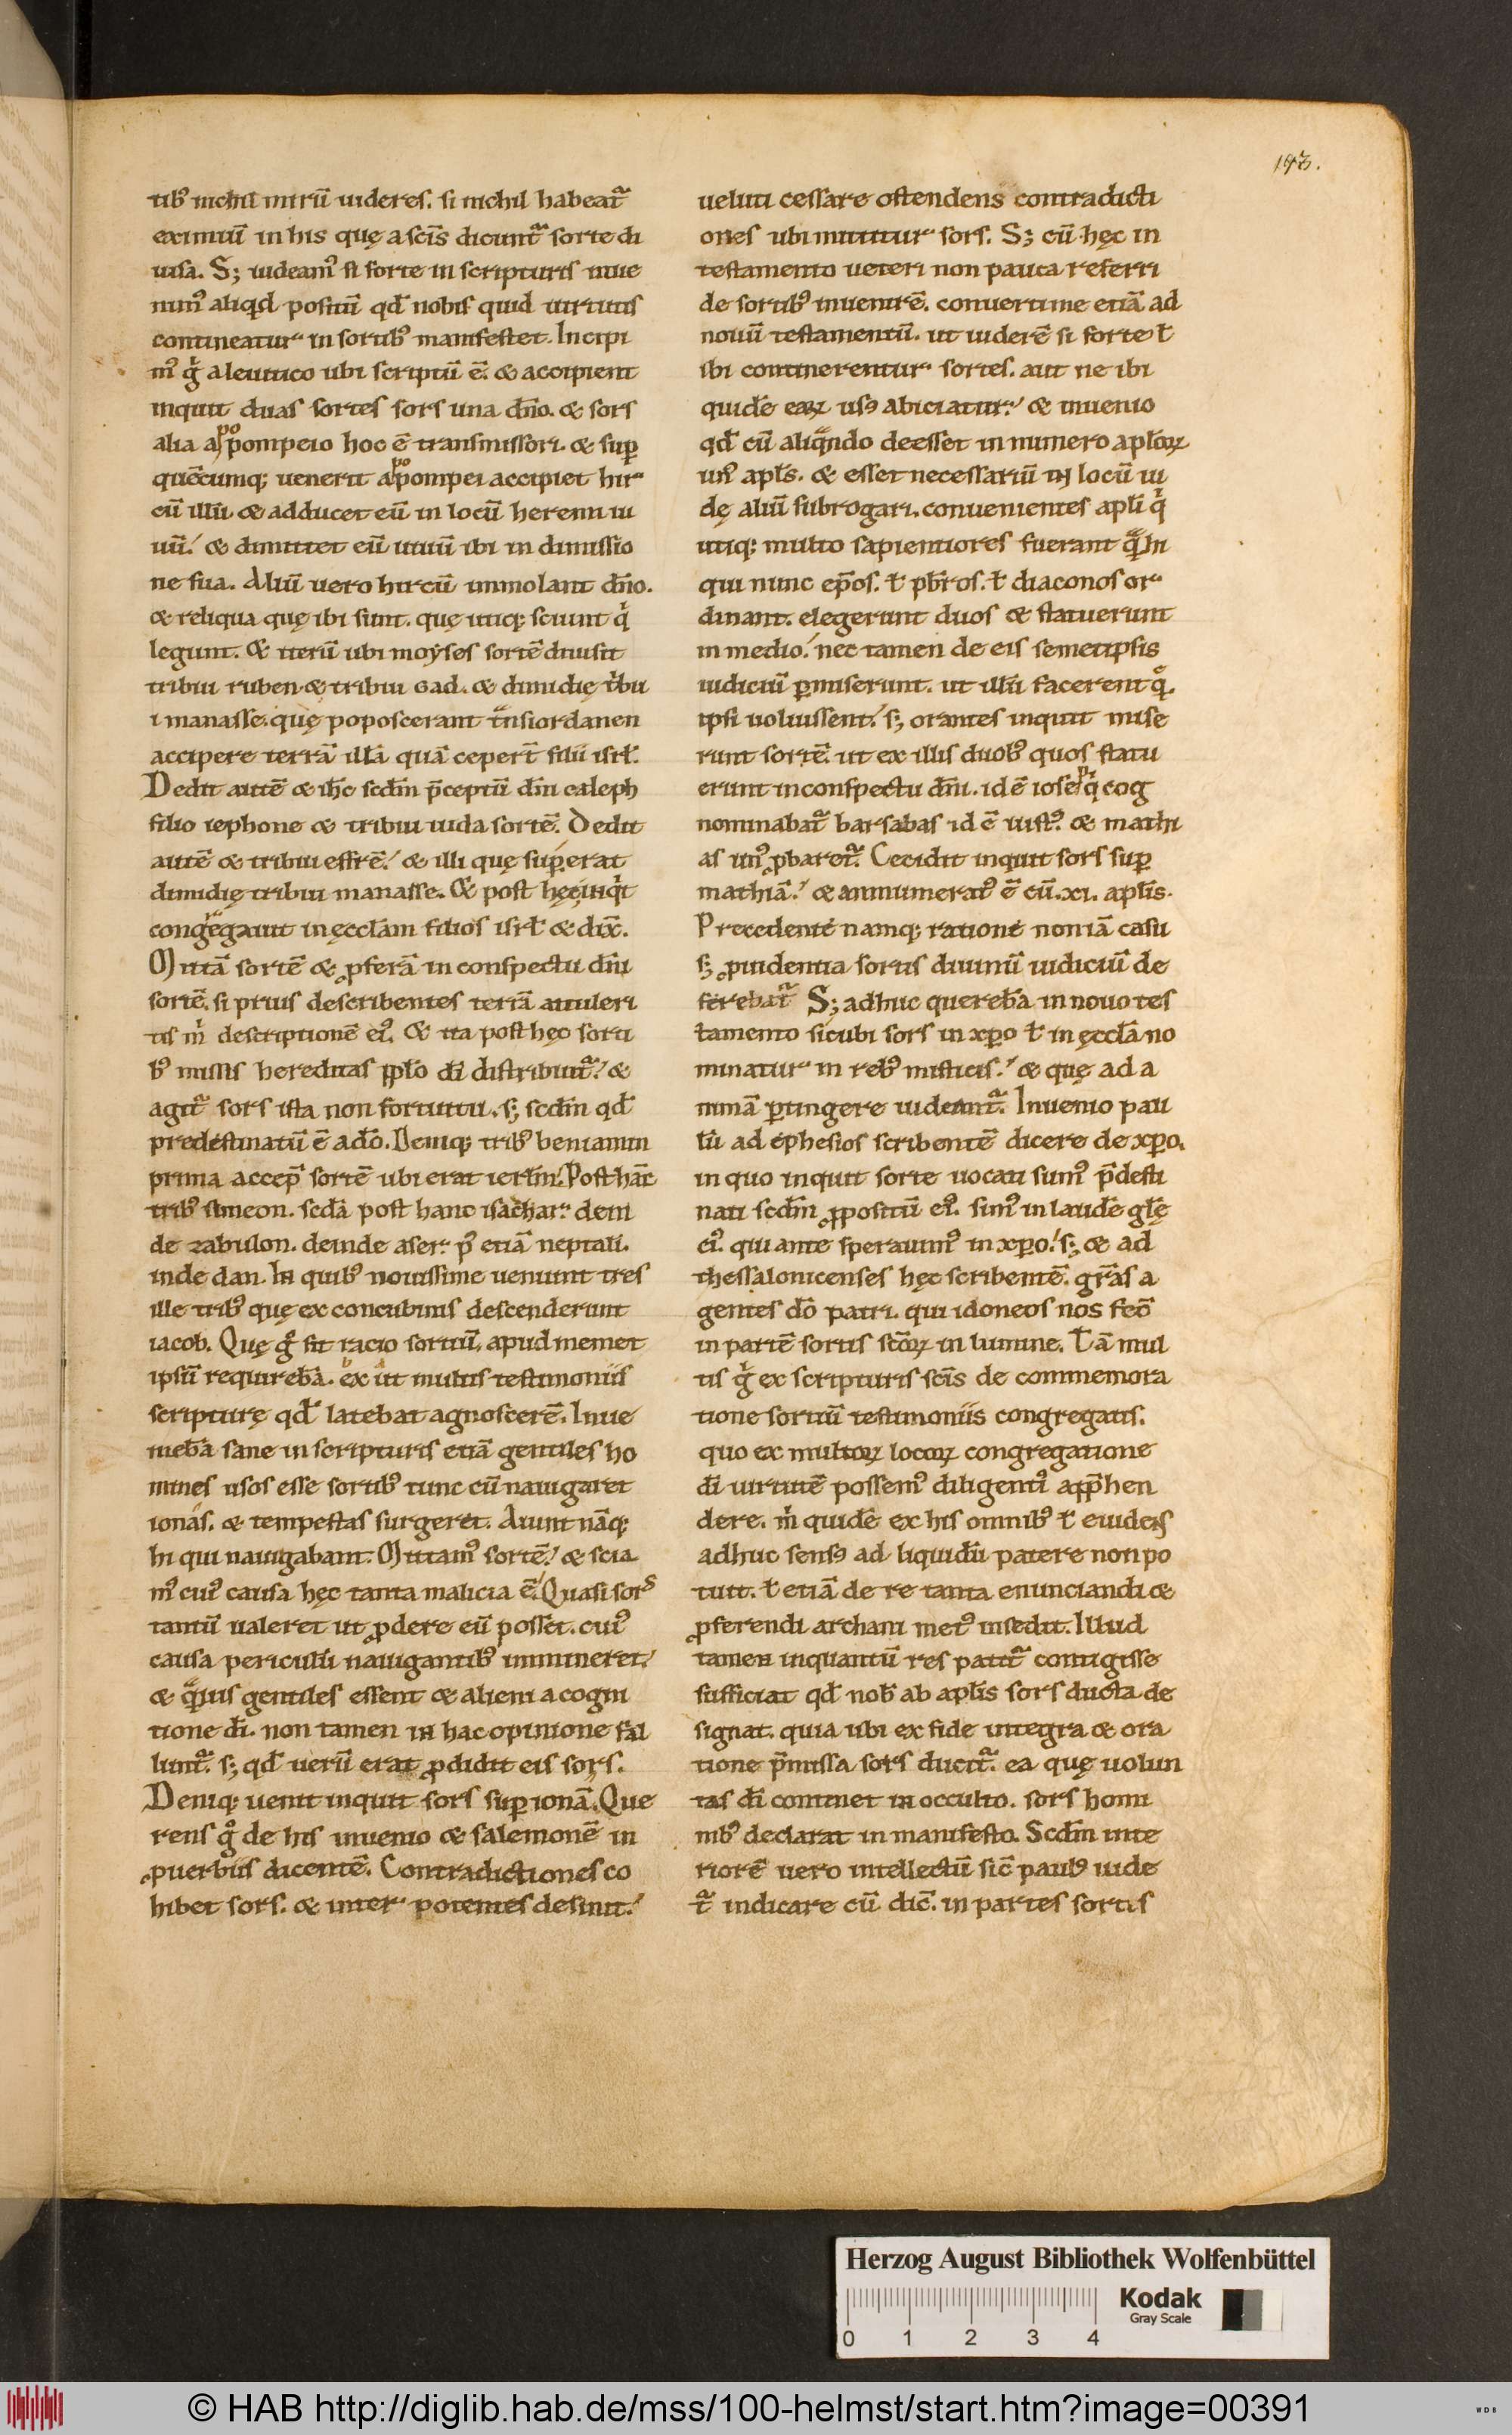 193.
tib᷒ nichil mirū uideres. si nichil habeat᷑
eximiū in his quę a scīs dicunt᷑ sorte di
uisa. S; uideam᷒ si forte in scripturis inue
nim᷒ aliqd positū qd̄ nobis quid uirtutis
contineatur in sortib᷒ manifestet. Incipi
m᷒ g̊ a leuitico ubi scriptū ē. & accipient
inquit duas sortes sors una dn̄o. & sors
alia apo pompeio hoc ē transmissori. & sup̱
quēcumq; uenerit apo pompei accipiet hir
cū illū & adducet eū in locū heremi ui
uū. & dimittet eū uiuū ibi in dimissio
ne sua. Aliū uero hircū immolant dn̄o.
& reliqua quę ibi sunt. quę utiq; sciunt q̇
legunt. & iterū ubi moyses sortē diuisit
tribui ruben & tribui gad. & dimidię t̓bu
i manasse. quę poposcerant tn̄siordanen
accipere terrā illā quā ceper̄t filii isrl̄.
Dedit autē & ih̄c scdm̄ p̄ceptū dn̄i caleph
filio iephone & tribui iuda sortē. Dedit
autē & tribui effrē. & illi quę sup̱erat
dimidię tribui manasse. & post hęc inq̇t
congregauit in ęccl̄am filios isrl̄ & dix̄.
Mittā sortē & ꝓferā in conspectu dn̄i
sortē. si prius describentes terrā attuleri
tis ṁ descriptionē ei᷒. & ita post hęc sorti
b᷒ missis hereditas pplo dī distribuit᷑. &
agit᷑ sors ista non fortuitu. s; scdm̄ qd̄
predestinatū ē a do. Deniq; trib᷒ beniamin
prima accep̄ sortē ubi erat ierlm̄. Post hāc
trib᷒ simeon. scdā post hanc isachar. dein
de zabulon. deinde aser. p᷒ etiā neptali.
inde dan. In quib᷒ nouissime ueniunt tres
ille trib᷒ quę ex concubinis descenderunt
iacob. Quę g̊ sit racio sortiū. apud memet
ipsū requirebā. ex ut multis testimoniis
scripturę qd̄ latebat agnoscerē. Inue
niebā sane in scripturis etiā gentiles ho
mines usos esse sortib᷒ tunc cū nauigaret
ionas. & tempestas surgeret. Aiunt nāq;
hi qui nauigabant. Mittam᷒ sortē. & scia
m᷒ cui᷒ causa hęc tanta malicia ē. Quasi sors
tantū ualeret ut ꝓdere eū posset. cui᷒
causa periculū nauigantib᷒ immineret.
& q̄uis gentiles essent & alieni a cogni
tione dī. non tamen in hac opinione fal
lunt᷑. s; qd̄ uerū erat ꝓdidit eis sors.
Deniq; uenit inquit sors sup̱ ionā. Que
rens g̊ de his inuenio & salemonē in
ꝓuerbiis dicentē. Contradictiones co
hibet sors. & inter potentes desinit.
ueluti cessare ostendens contradicti
ones ubi mittitur sors. S; cū hęc in
testamento ueteri non pauca referri
de sortib᷒ inuenirē. conuerti me etiā ad
nouū testamentū. ut uiderē si forte ł
ibi continerentur sortes. aut ne ibi
quidē eaꝝ usꝰ abiciatur. & inuenio
qd̄ cū aliq̄ndo deesset in numero apl̄oꝝ
un᷒ apl̄s. & esset necessariū in locū iu
dę aliū subrogari. conuenientes apl̄i q̇
utiq; multo sapientiores fuerant q̄ hi
qui nunc ep̄os. ł pb̄ros. ł diaconos or
dinant. elegerunt duos & statuerunt
in medio. nec tamen de eis semetipsis
iudiciū p̱miserunt. ut illū facerent q̊.
ipsi uoluissent. s; orantes inquit mise
runt sortē. ut ex illis duob᷒ quos statu
erunt in conspectu dn̄i. id ē ioseph q̇ cog
nominabat᷑ barsabas id ē iust᷒. & mathi
as un᷒ ꝓbaret᷑. Cecidit inquit sors sup̱
mathiā. & annumerat᷒ ē cū .xi. apl̄is.
Precedente namq; ratione non iā casu
s; ꝓuidentia sortis diuinū iudiciū de
ferebat᷑ S; adhuc querebā in nouo tes
tamento sicubi sors in xp̄o ł in ęccl̄a no
minatur in reb᷒ misticis. & quę ad a
nimā p̱tingere uideant᷑. Inuenio pau
lū ad ephesios scribentē dicere de xp̄o.
in quo inquit sorte uocati sum᷒ p̄desti
nati scdm̄ ꝓpositū ei᷒. sim᷒ in laudē glę
ei᷒. qui ante sperauim᷒ in xp̄o. s; & ad
thessalonicenses hęc scribentē. gr̄as a
gentes do patri. qui idoneos nos fecō
in partē sortis sc̄oꝝ in lumine. Tā mul
tis g̊ ex scripturis scīs de commemora
tione sortiū testimoniis congregatis.
quo ex multoꝝ locoꝝ congregatione
dī uirtutē possem᷒ diligenti᷒ app̄hen
dere. ṁ quidē ex his omnib᷒ ł euidens
adhuc sensꝰ ad liquidū patere non po
tuit. ł etiā de re tanta enunciandi &
ꝓferendi archani met᷒ insedit. Illud
tamen inquantū res patit᷑ contigisse
sufficiat qd̄ nob̄ ab apl̄is sors ducta de
signat. quia ubi ex fide integra & ora
tione p̄missa sors ducit᷑. ea quę uolun
tas dī continet in occulto. sors homi
nib᷒ declarat in manifesto. Scdm̄ inte
riorē uero intellectū sic̄ paulꝰ uide
t᷑ indicare cū dic̄. in partes sortis
Herzog August Bibliothek Wolfenbüttel
Kodak
Gray Scale
0 1 2 3 4
© HAB http://diglib.hab.de/mss/100-helmst/start.htm?image=00391
WDB